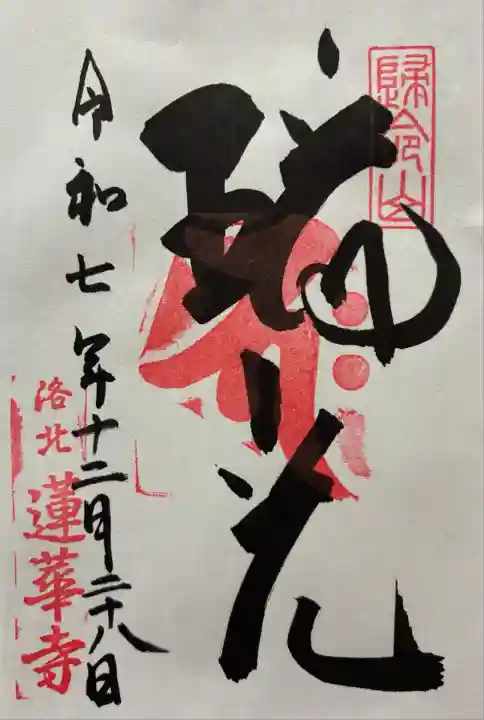 歸命山
瑞花
令和七年十二月二十八日
洛北
蓮華寺